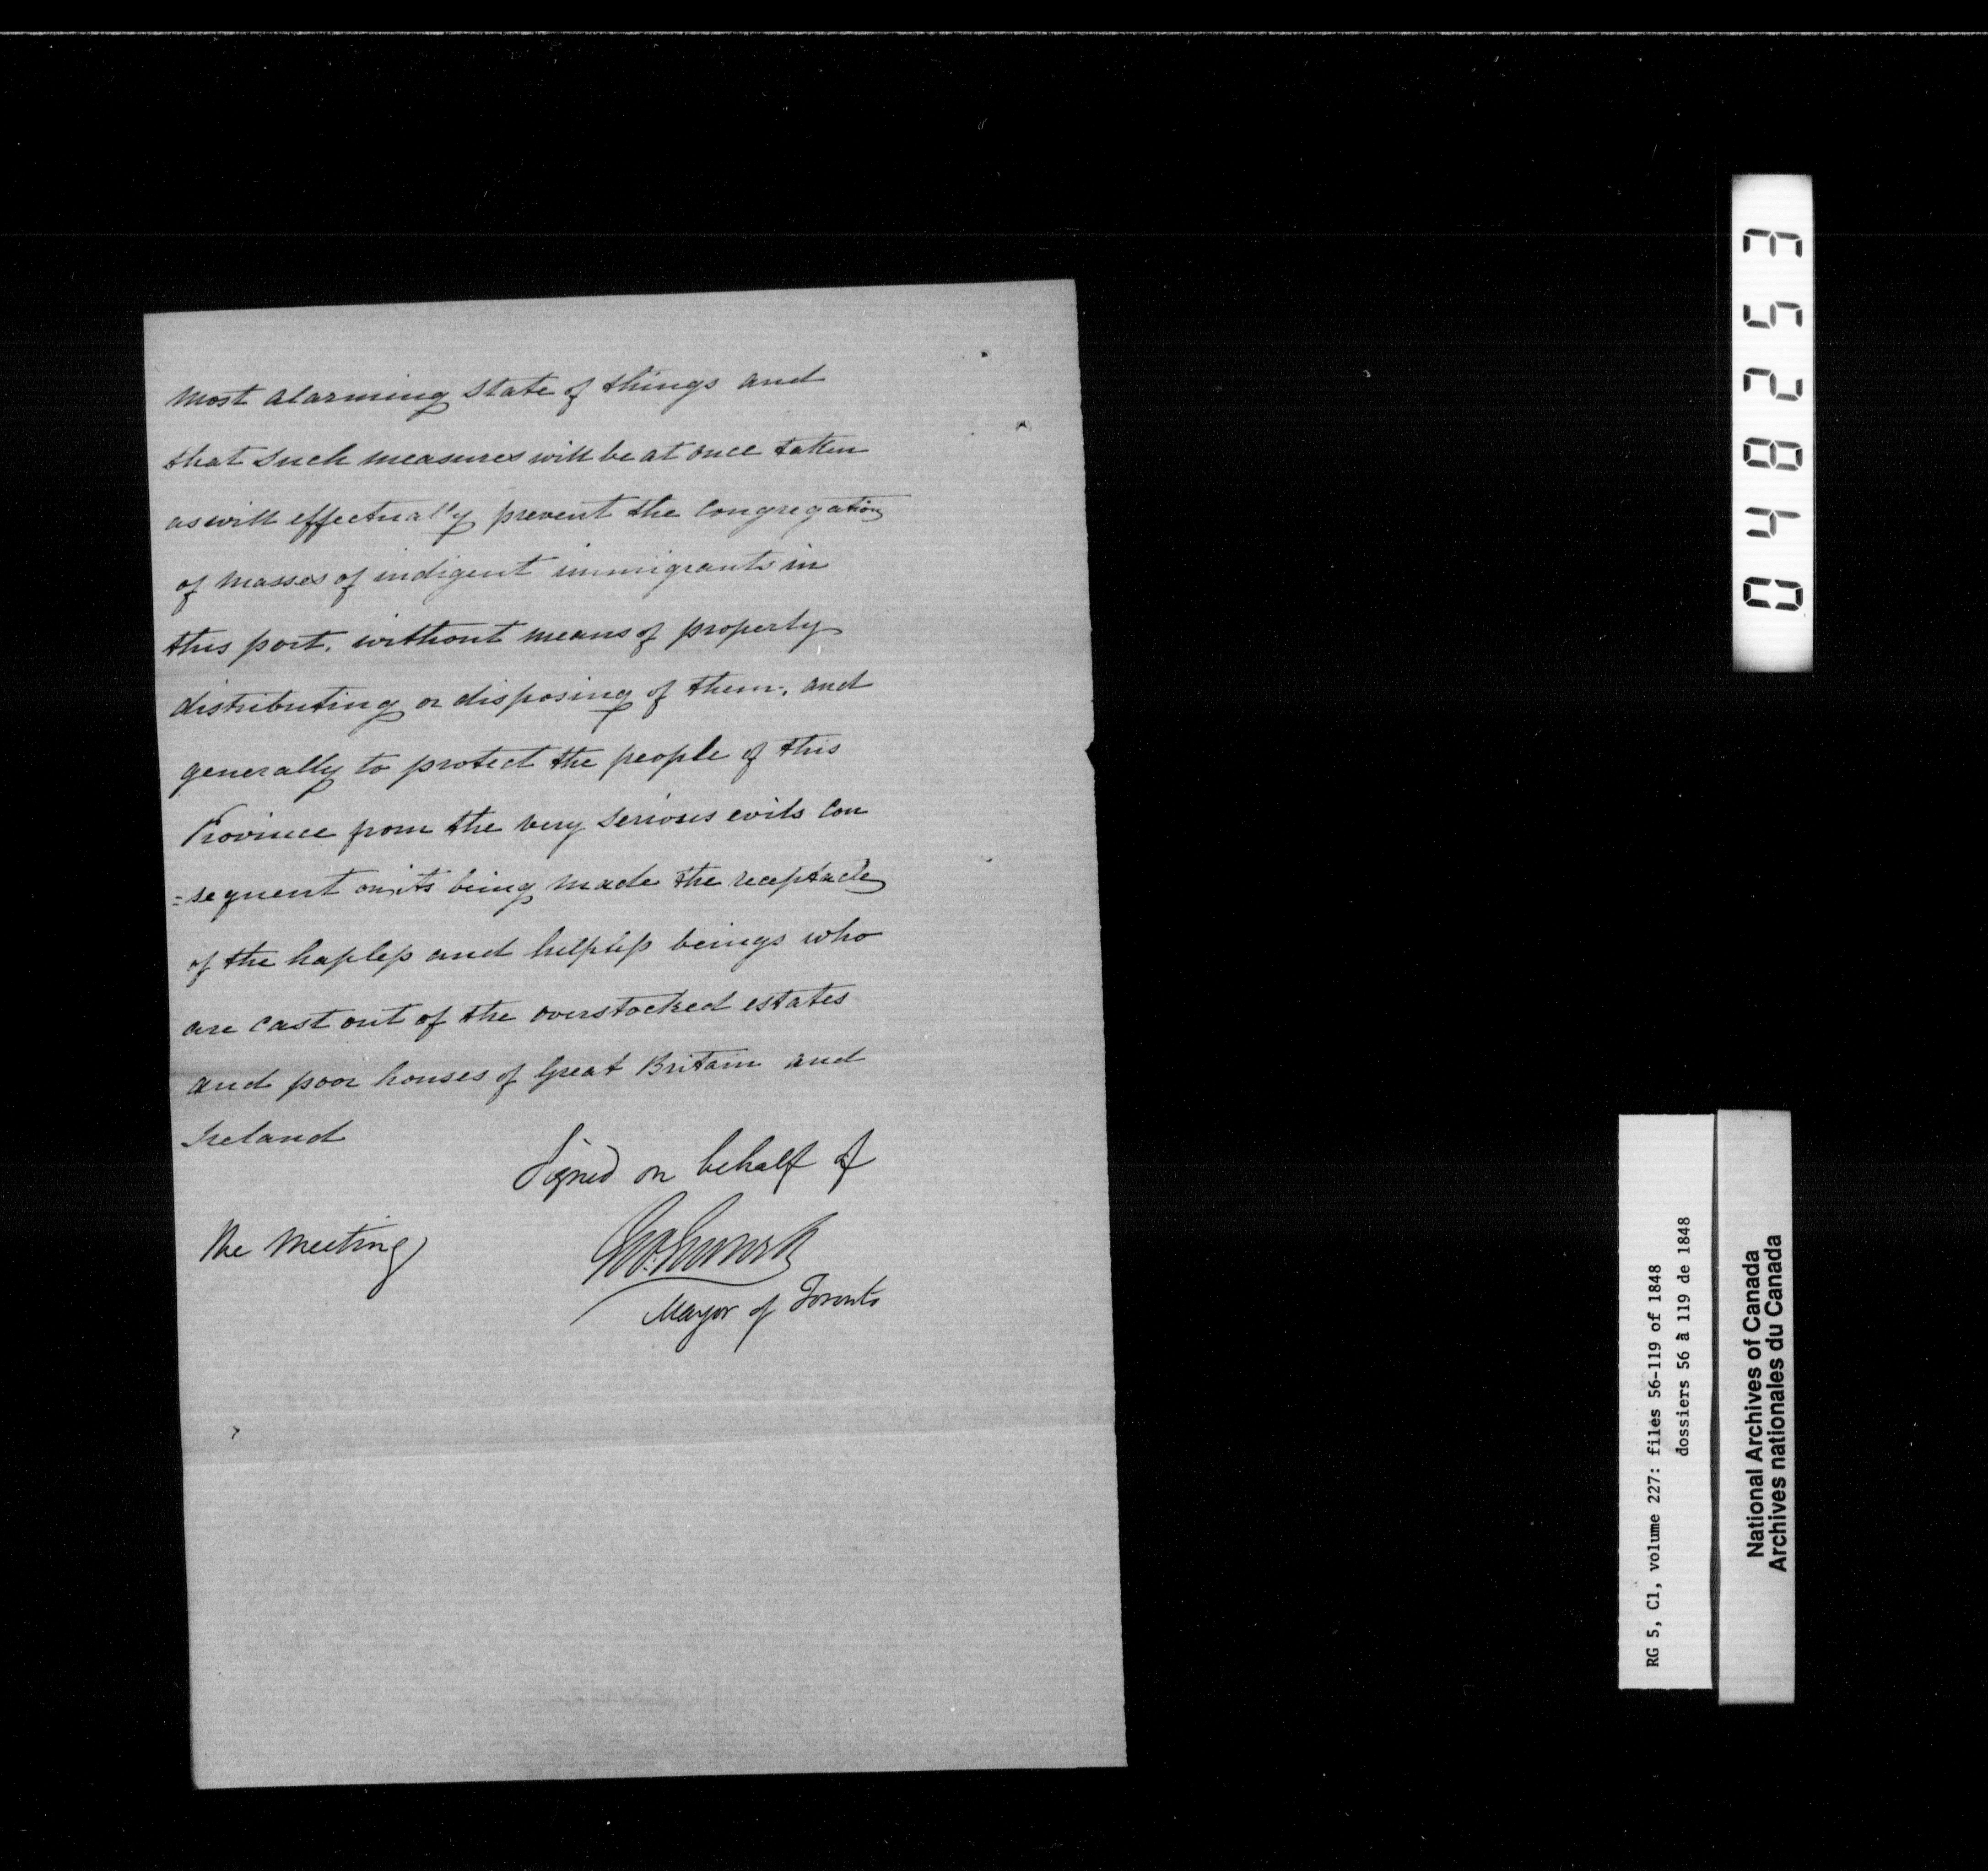 most alarming state of things and
that such measures will be at once taken
as will effectually prevent the congregation
of masses of indigent immigrants in
this port, without means of property
distributing or disposing of them, and
generally to protect the people of this
Province from the very serious evils con
=sequent on its being made the receptacle
of the hapless and helpless beings who
are cast out of the overstocked estates
and poor houses of Great Britain and
Ireland
Signed on behalf of
the Meeting
Geo. Gurnett
Mayor of Toronto
048253
RG 5, C1, volume 227: files 56-119 of 1848
dossiers 56 à 119 de 1848
National Archives of Canada
Archives nationales du Canada